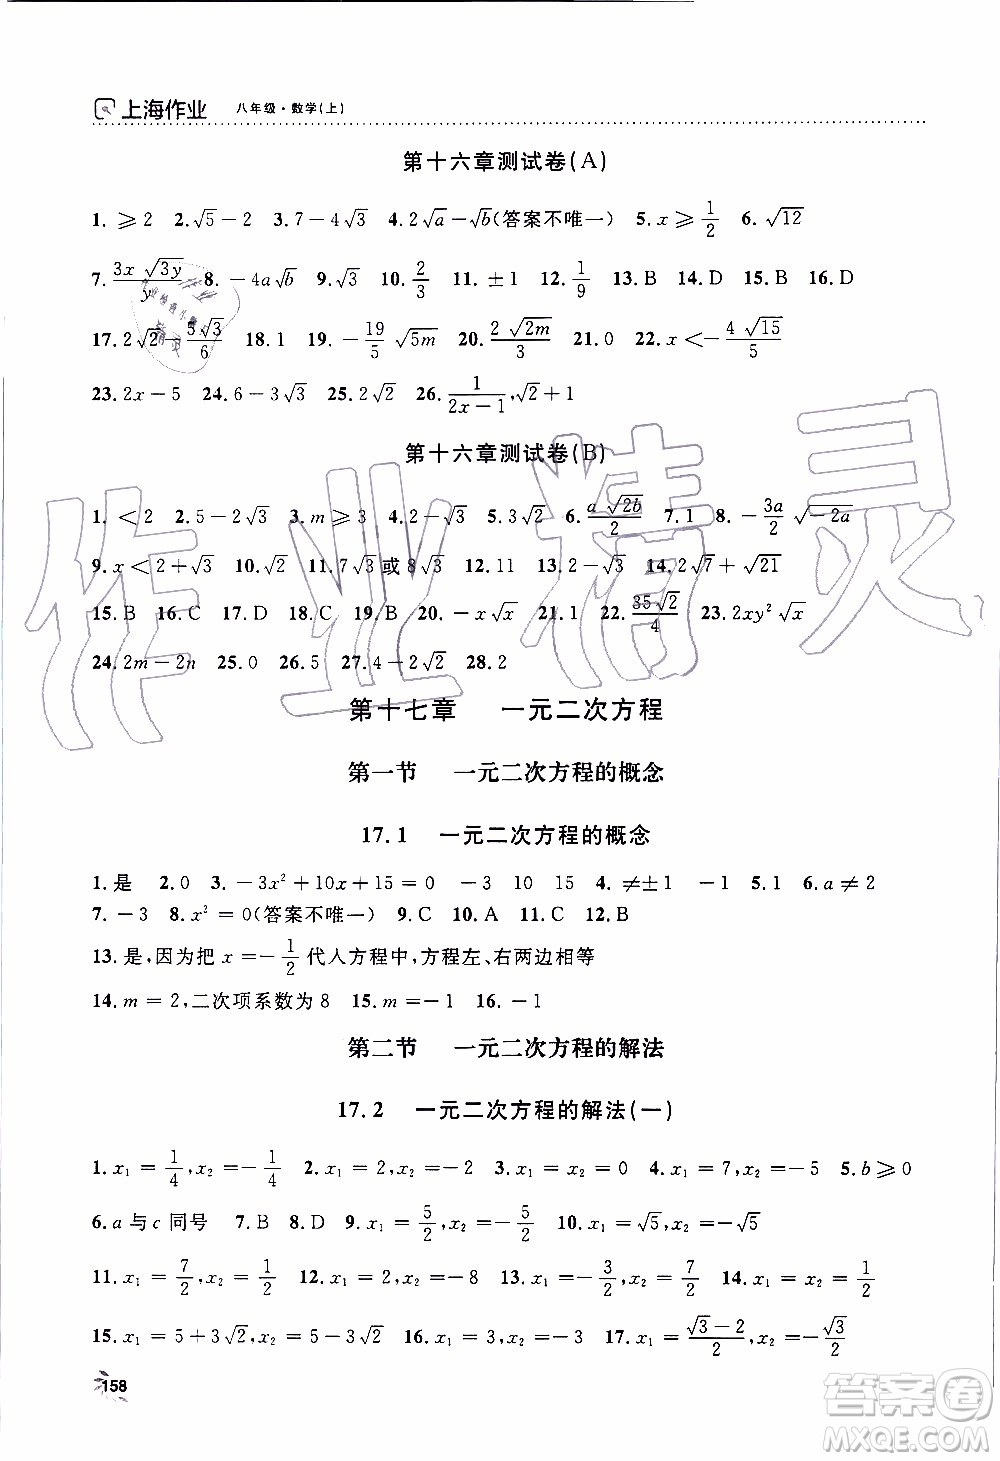 上海作业 八年级·数学(上)
第十六章测试卷(A)
1. ⩾2 2. √5－2 3. 7－4√3 4. 2√a－√b(答案不唯一) 5. x⩾1/2 6. √12
7. 3x√3y/y 8. －4a√b 9. √3 10. 2/3 11. ±1 12. 1/9 13. B 14. D 15. B 16. D
17. 2√2－5√3/6 18. 1 19. －19/5√5m 20. 2√2m/3 21. 0 22. x＜－4√15/5
23. 2x－5 24. 6－3√3 25. 2√2 26. 1/(2x－1),√2＋1
第十六章测试卷(B)
1. ＜2 2. 5－2√3 3. m⩾3 4. 2－√3 5. 3√2 6. a√2b/2 7. 1 8. －3a/2√－2a
9. x＜2＋√3 10. √2 11. 7√3或8√3 12. 11 13. 2－√3 14. 2√7＋√21
15. B 16. C 17. D 18. C 19. B 20. －x√x 21. 1 22. 35√2/4 23. 2xy²√x
24. 2m－2n 25. 0 26. 5 27. 4－2√2 28. 2
第十七章 一元二次方程
第一节 一元二次方程的概念
17.1 一元二次方程的概念
1. 是 2. 0 3. －3x²＋10x＋15＝0 －3 10 15 4. ≠±1 －1 5. 1 6. a≠2
7. －3 8. x²＝0(答案不唯一) 9. C 10. A 11. C 12. B
13. 是,因为把 x＝－1/2 代人方程中,方程左、右两边相等
14. m＝2,二次项系数为 8 15. m＝－1 16. －1
第二节 一元二次方程的解法
17.2 一元二次方程的解法(一)
1. x₁＝1/4,x₂＝－1/4 2. x₁＝2,x₂＝－2 3. x₁＝x₂＝0 4. x₁＝5,x₂＝－5 5. b⩾0
6. a 与 c 同号 7. B 8. D 9. x₁＝5/2,x₂＝－5/2 10. x₁＝√5,x₂＝－√5
11. x₁＝7/2,x₂＝1/2 12. x₁＝2,x₂＝－8 13. x₁＝－3/2,x₂＝7/2 14. x₁＝x₂＝1/2
15. x₁＝5＋3√2,x₂＝5－3√2 16. x₁＝3,x₂＝－3 17. x₁＝(√3－2)/2,x₂＝－√3/2
158
作业精灵
答案圈
MXQE.COM